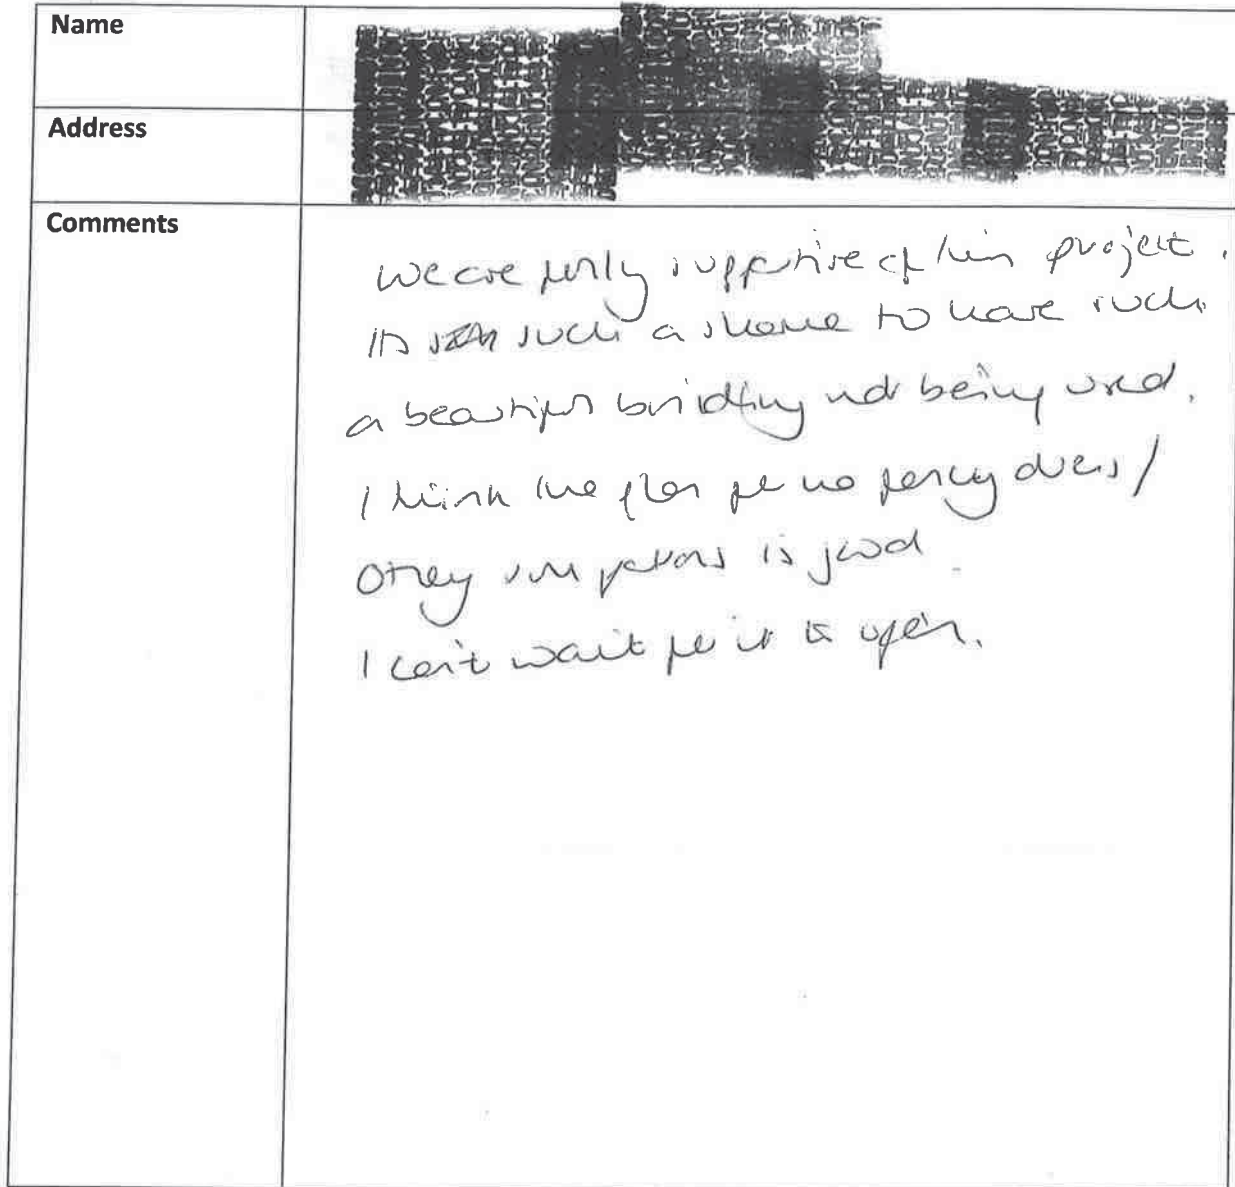 Name
Address
Comments
We are fully supportive of this project.
Its such a shame to have such
a beautiful building not being used.
I think the plan for no
is good
I can't wait for it to open.